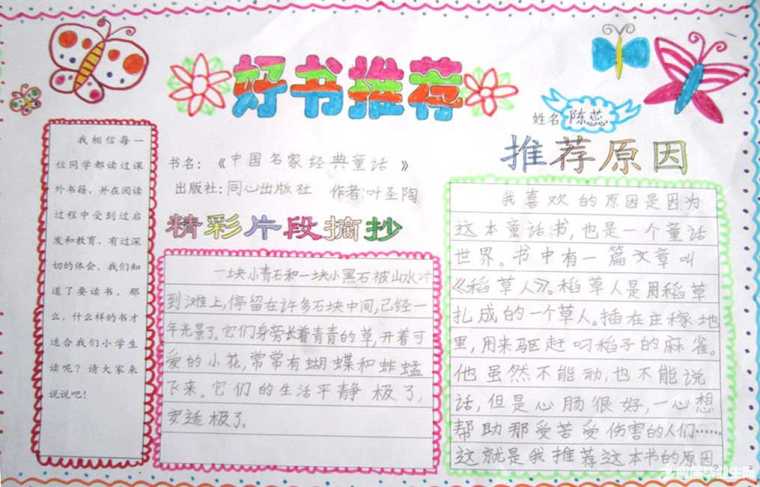 好书推荐
姓名：陈蕊
我相信每一
位同学都读过课
外书籍，并在阅读
过程中受到过启
发和教育，有过深
切的体会，我们知
道了要读书，那
么，什么样的书才
适合我们小学生
读呢？请大家来
说说吧！
书名：《中国名家经典童话》
出版社：同心出版社 作者：叶圣陶
精彩片段摘抄
一块小青石和一块小黑石被山水冲
到滩上，停留在许多石块中间，已经一
年光景了。它们身旁长着青青的草，开着可
爱的小花，常常有蝴蝶和蚱蜢
飞来。它们的生活平静极了，
安适极了。
推荐原因
我喜欢的原因是因为
这本童话书，也是一个童话
世界。书中有一篇文章叫
《稻草人》。稻草人是用稻草
扎成的一个草人。插在庄稼地
里，用来驱赶叼稻子的麻雀。
他虽然不能动，也不能说
话，但是心肠很好，一心想
帮助那受苦受伤害的人们……
这就是我推荐这本书的原因